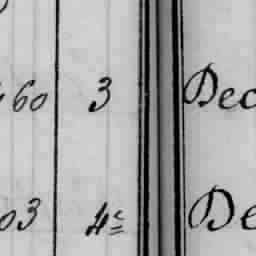 60 3 Dec
03 4c De